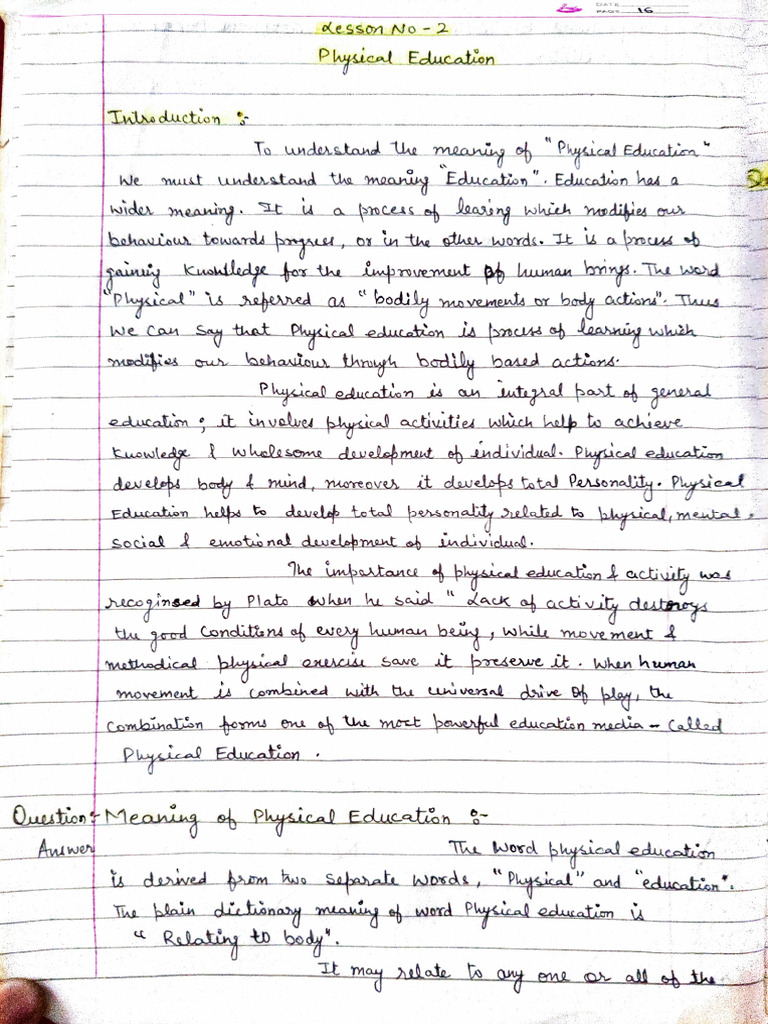 DATE
PAGE 16
Lesson No - 2
Physical Education
Introduction :-
To understand the meaning of "Physical Education"
We must understand the meaning "Education". Education has a
wider meaning. It is a process of learing which modifies our
behaviour towards progress, or in the other words. It is a process of
gaining knowledge for the improvement of human brings. The word
"Physical" is referred as "bodily movements or body actions". Thus
we can say that Physical education is process of learning which
modifies our behaviour through bodily based actions.
Physical education is an integral part of general
education; it involves physical activities which help to achieve
knowledge & wholesome development of individual. Physical education
develops body & mind, moreover it develops total Personality. Physical
Education helps to develop total personality related to physical, mental,
social & emotional development of individual.
The importance of physical education & activity was
recoginsed by Plato when he said " Lack of activity destorogs
the good conditions of every human being, while movement &
methodical physical exercise save it preserve it. When human
movement is combined with the universal drive of play, the
combination forms one of the most powerful education media - called
Physical Education .
Question:- Meaning of Physical Education :-
Answer The word physical education
is derived from two separate words, "Physical" and "education".
The plain dictionary meaning of word Physical education is
" Relating to body".
It may relate to any one or all of the